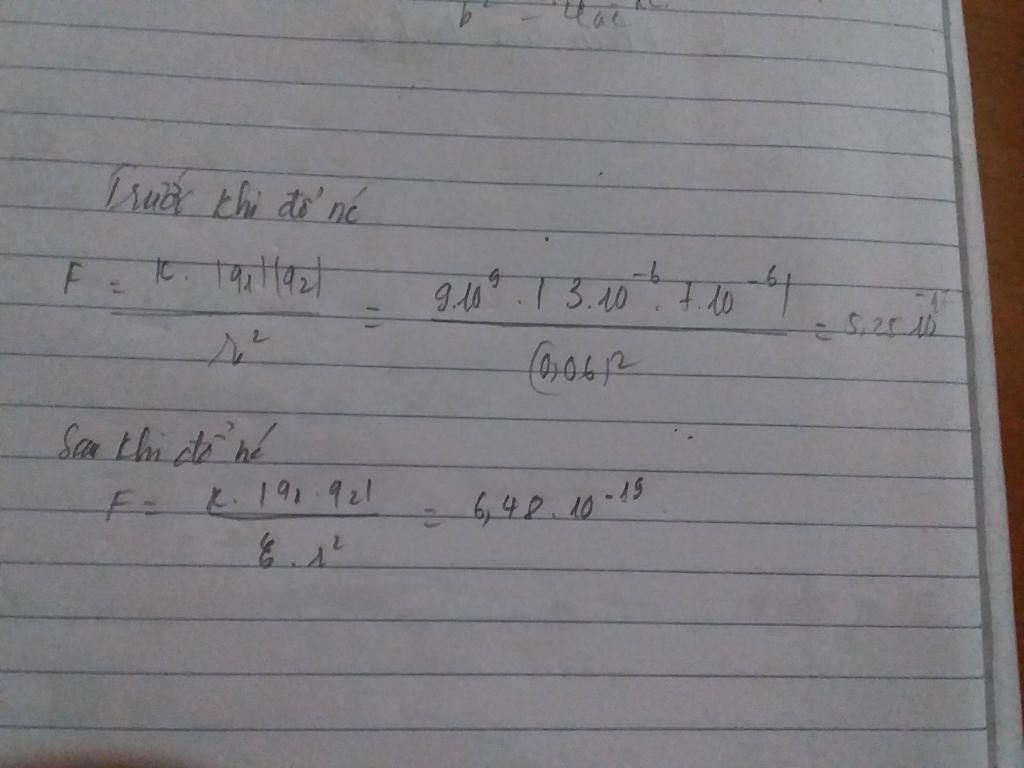 b² - 4ac
Trước khi đổ nc
F = K. |q1||q2| / r² = 9.10⁹ . | 3.10⁻⁶ . 7.10⁻⁶| / (0,06)² = 5,25 10
Sau khi đổ nc
F = K. |q1 . q2| / ε . r² = 6,48 . 10⁻¹⁹